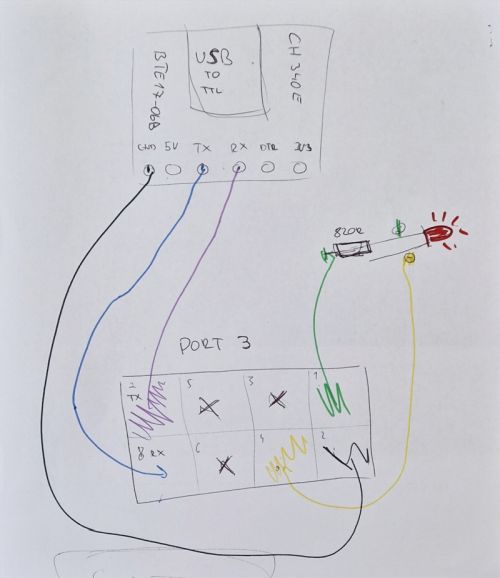 BTE17-06B
USB
TO
TTL
CH340E
GND 5V TX RX DTR 3V3
820R
PORT 3
7 5 3 1
TX
8 RX 6 4 2